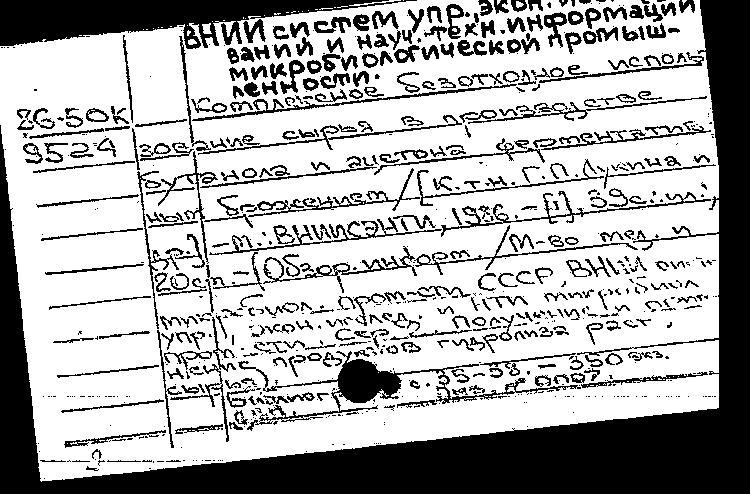 ВНИИ систем упр., экон.
ваний и науч.-техн. информации
микробиологической промыш-
ленности.
Комплексное безотходное исполь
26-50К
9524 зование сырья в производстве
бутанола и ацетона ферментатив
ным брожением / [К.т.н. Г.П. Лукина и
др.] - М.: ВНИИСЭНТИ, 1986. - [1], 39с.: ил.;
20см. - (Обзор. информ. / М-во мед. и
микробиол. пром-сти СССР, ВНИИ
упр., экон. исслед. и НТИ микробиол
пром-сти. Сер. Получение и
нение продуктов гидролиза раст.
сырья)
Библиогр с. 35-38. - 350 экз.
2